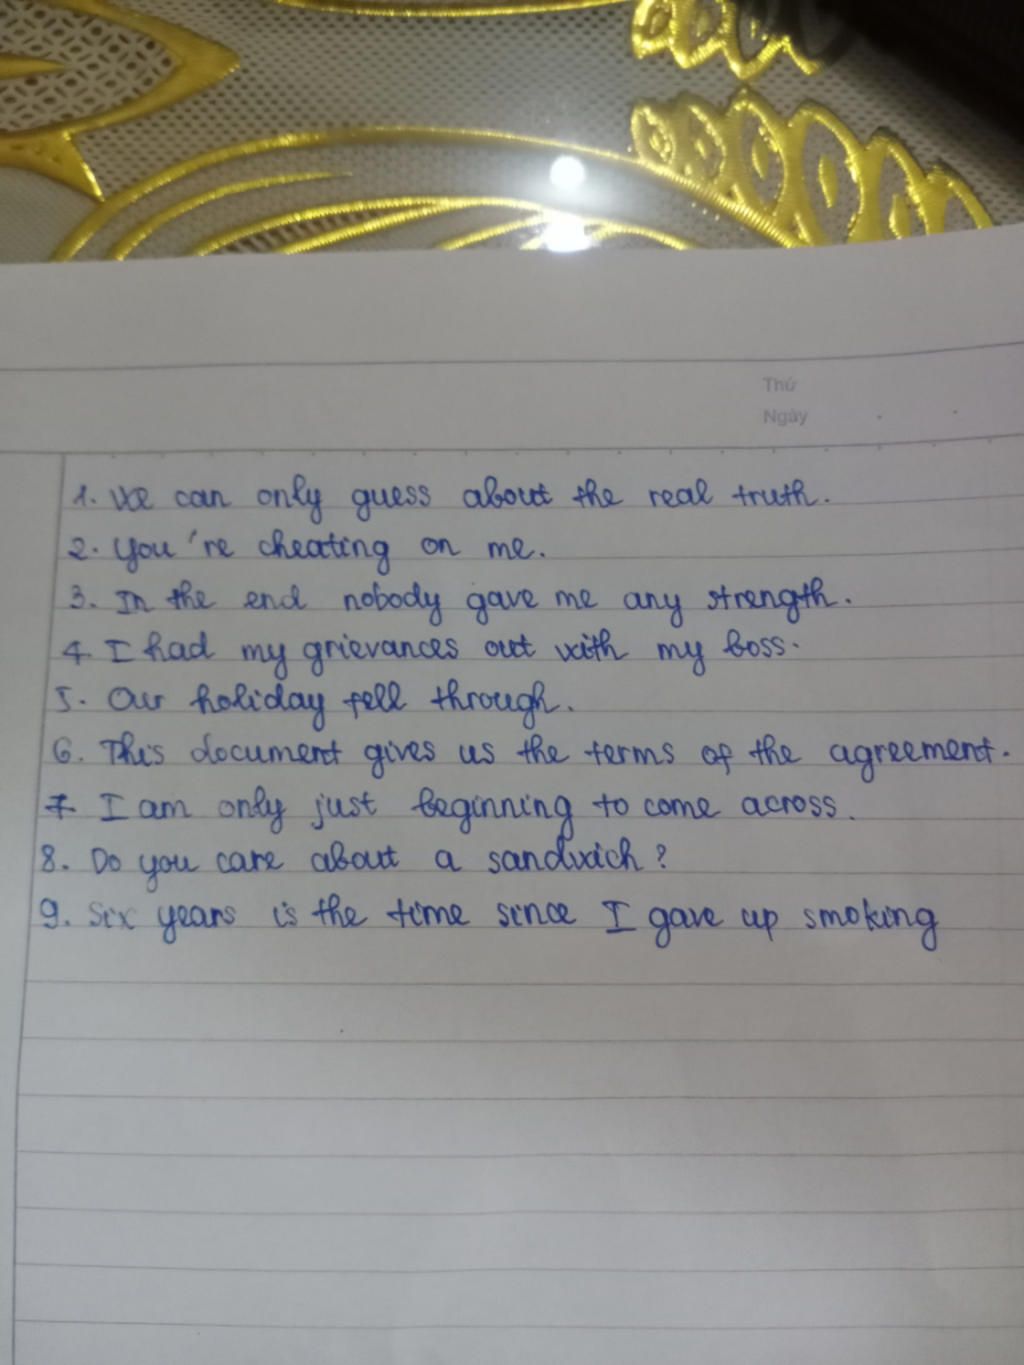 Thứ
Ngày
1. We can only guess about the real truth.
2. You're cheating on me.
3. In the end nobody gave me any strength.
4. I had my grievances out with my boss.
5. Our holiday fell through.
6. This document gives us the terms of the agreement.
7. I am only just beginning to come across.
8. Do you care about a sandwich?
9. Six years is the time since I gave up smoking